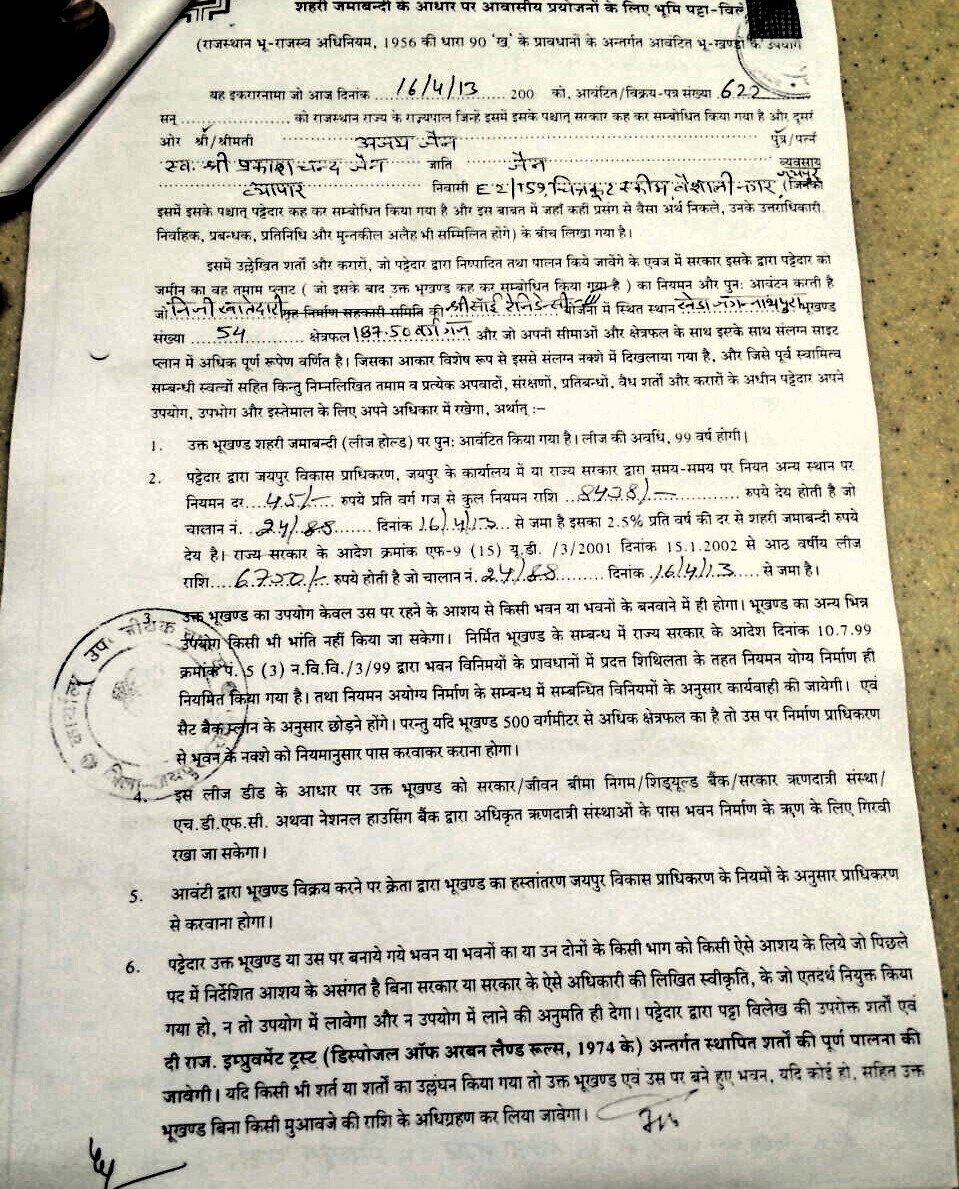 शहरी जमाबन्दी के आधार पर आवासीय प्रयोजनों के लिए भूमि पट्टा-विलेख
(राजस्थान भू-राजस्व अधिनियम, 1956 की धारा 90 'ख' के प्रावधानों के अन्तर्गत आवंटित भू-खण्डों के उपयोग
यह इकरारनामा जो आज दिनांक ...16/4/13... 200 को, आवंटित/विक्रय-पत्र संख्या .622
सन् .................. को राजस्थान राज्य के राज्यपाल जिन्हें इसमें इसके पश्चात् सरकार कह कर सम्बोधित किया गया है और दूसरे
ओर श्री/श्रीमती अजय जैन पुत्र/पत्नि
स्व. श्री प्रकाश चन्द जैन जाति जैन व्यवसाय
व्यापार निवासी E2/159, चित्रकूट स्कीम वैशाली नगर, जयपुर (जिनको
इसमें इसके पश्चात् पट्टेदार कह कर सम्बोधित किया गया है और इस बाबत में जहाँ कहीं प्रसंग से वैसा अर्थ निकले, उनके उत्तराधिकारी,
निर्वाहक, प्रबन्धक, प्रतिनिधि और मुन्तकील अलैह भी सम्मिलित होंगे) के बीच लिखा गया है।
इसमें उल्लेखित शर्तो और करारों, जो पट्टेदार द्वारा निष्पादित तथा पालन किये जावेंगे के एवज में सरकार इसके द्वारा पट्टेदार को
जमीन का वह तमाम प्लाट ( जो इसके बाद उक्त भूखण्ड कह कर सम्बोधित किया गया है ) का नियमन और पुनः आवंटन करती है
जो निजी खातेदारी गृह निर्माण सहकारी समिति की श्री साँई रेजिडेन्सी III योजना में स्थित स्थान जगन्नाथपुरा भूखण्ड
संख्या ....54.... क्षेत्रफल 187.50 वर्ग गज और जो अपनी सीमाओं और क्षेत्रफल के साथ इसके साथ संलग्न साइट
प्लान में अधिक पूर्ण रूपेण वर्णित है। जिसका आकार विशेष रूप से इससे संलग्न नक्शे में दिखलाया गया है, और जिसे पूर्व स्वामित्व
सम्बन्धी स्वत्वों सहित किन्तु निम्नलिखित तमाम व प्रत्येक अपवादों, संरक्षणों, प्रतिबन्धों, वैध शर्तों और करारों के अधीन पट्टेदार अपने
उपयोग, उपभोग और इस्तेमाल के लिए अपने अधिकार में रखेगा, अर्थात् :–
1. उक्त भूखण्ड शहरी जमाबन्दी (लीज होल्ड) पर पुनः आवंटित किया गया है। लीज की अवधि, 99 वर्ष होगी।
2. पट्टेदार द्वारा जयपुर विकास प्राधिकरण, जयपुर के कार्यालय में या राज्य सरकार द्वारा समय-समय पर नियत अन्य स्थान पर
नियमन दर ...45/-... रुपये प्रति वर्ग गज से कुल नियमन राशि ..8438/-.. रुपये देय होती है जो
चालान नं. .24/88...... दिनांक 16/4/13.. से जमा है इसका 2.5% प्रति वर्ष की दर से शहरी जमाबन्दी रुपये
देय है। राज्य सरकार के आदेश क्रमांक एफ-9 (15) यू.डी. /3/2001 दिनांक 15.1.2002 से आठ वर्षीय लीज
राशि...6750/-.. रुपये होती है जो चालान नं. 24/88 ......... दिनांक .16/4/13.... से जमा है।
3. उक्त भूखण्ड का उपयोग केवल उस पर रहने के आशय से किसी भवन या भवनों के बनवाने में ही होगा। भूखण्ड का अन्य भिन्न
उपयोग किसी भी भांति नहीं किया जा सकेगा। निर्मित भूखण्ड के सम्बन्ध में राज्य सरकार के आदेश दिनांक 10.7.99
क्रमांक पं. 5 (3) न.वि.वि./3/99 द्वारा भवन विनिमयों के प्रावधानों में प्रदत्त शिथिलता के तहत नियमन योग्य निर्माण ही
नियमित किया गया है। तथा नियमन अयोग्य निर्माण के सम्बन्ध में सम्बन्धित विनियमों के अनुसार कार्यवाही की जायेगी। एवं
सैट बैक प्लान के अनुसार छोड़ने होंगे। परन्तु यदि भूखण्ड 500 वर्गमीटर से अधिक क्षेत्रफल का है तो उस पर निर्माण प्राधिकरण
से भूवन के नक्शे को नियमानुसार पास करवाकर कराना होगा।
4. इस लीज डीड के आधार पर उक्त भूखण्ड को सरकार/जीवन बीमा निगम/शिड्यूल्ड बैंक/सरकार ऋणदात्री संस्था/
एच.डी.एफ.सी. अथवा नेशनल हाउसिंग बैंक द्वारा अधिकृत ऋणदात्री संस्थाओं के पास भवन निर्माण के ऋण के लिए गिरवी
रखा जा सकेगा।
5. आवंटी द्वारा भूखण्ड विक्रय करने पर क्रेता द्वारा भूखण्ड का हस्तांतरण जयपुर विकास प्राधिकरण के नियमों के अनुसार प्राधिकरण
से करवाना होगा।
6. पट्टेदार उक्त भूखण्ड या उस पर बनाये गये भवन या भवनों का या उन दोनों के किसी भाग को किसी ऐसे आशय के लिये जो पिछले
पद में निर्देशित आशय के असंगत है बिना सरकार या सरकार के ऐसे अधिकारी की लिखित स्वीकृति, के जो एतदर्थ नियुक्त किया
गया हो, न तो उपयोग में लावेगा और न उपयोग में लाने की अनुमति ही देगा। पट्टेदार द्वारा पट्टा विलेख की उपरोक्त शर्तों एवं
दी राज. इम्प्रुवमेंट ट्रस्ट (डिस्पोजल ऑफ अरबन लैण्ड रूल्स, 1974 के) अन्तर्गत स्थापित शर्तो की पूर्ण पालना की
जावेगी। यदि किसी भी शर्त या शर्तों का उल्लंघन किया गया तो उक्त भूखण्ड एवं उस पर बने हुए भवन, यदि कोई हो, सहित उक्त
भूखण्ड बिना किसी मुआवजे की राशि के अधिग्रहण कर लिया जावेगा।